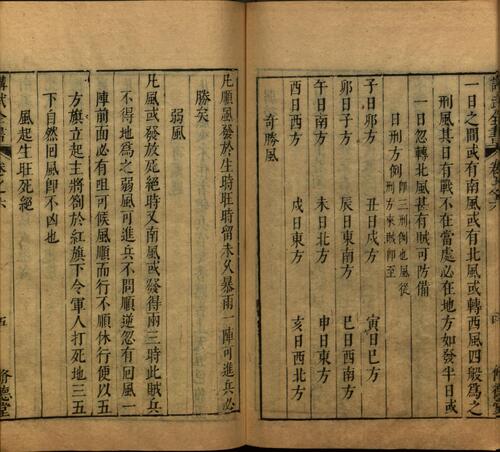 一日之間或有南風或有北風或轉西風四殺為之
刑風其日有戰不在當處必在地方如發半日或
一日忽轉北風甚有賊可防備
日刑方例 即三刑例也風從
刑方來賊即至
子日卯方 丑日戌方 寅日巳方
卯日子方 辰日東南方 巳日西南方
午日南方 未日北方 申日東方
酉日西方 戌日東方 亥日西北方
奇勝風
凡順風發於生時旺時留未久暴雨一陣可進兵必
勝矣
弱風
凡風或發放死絕時又南風或發得兩三時此賊兵
不得地為之弱風可進兵不問順逆忽有回風一
陣前面必有咀可候風順而行不順休行便以五
方旗立起主將劄於紅旗下令軍人打死地三五
下自然回風即不凶也
風起生旺死絕
講武全書 卷之六 五 脩德堂